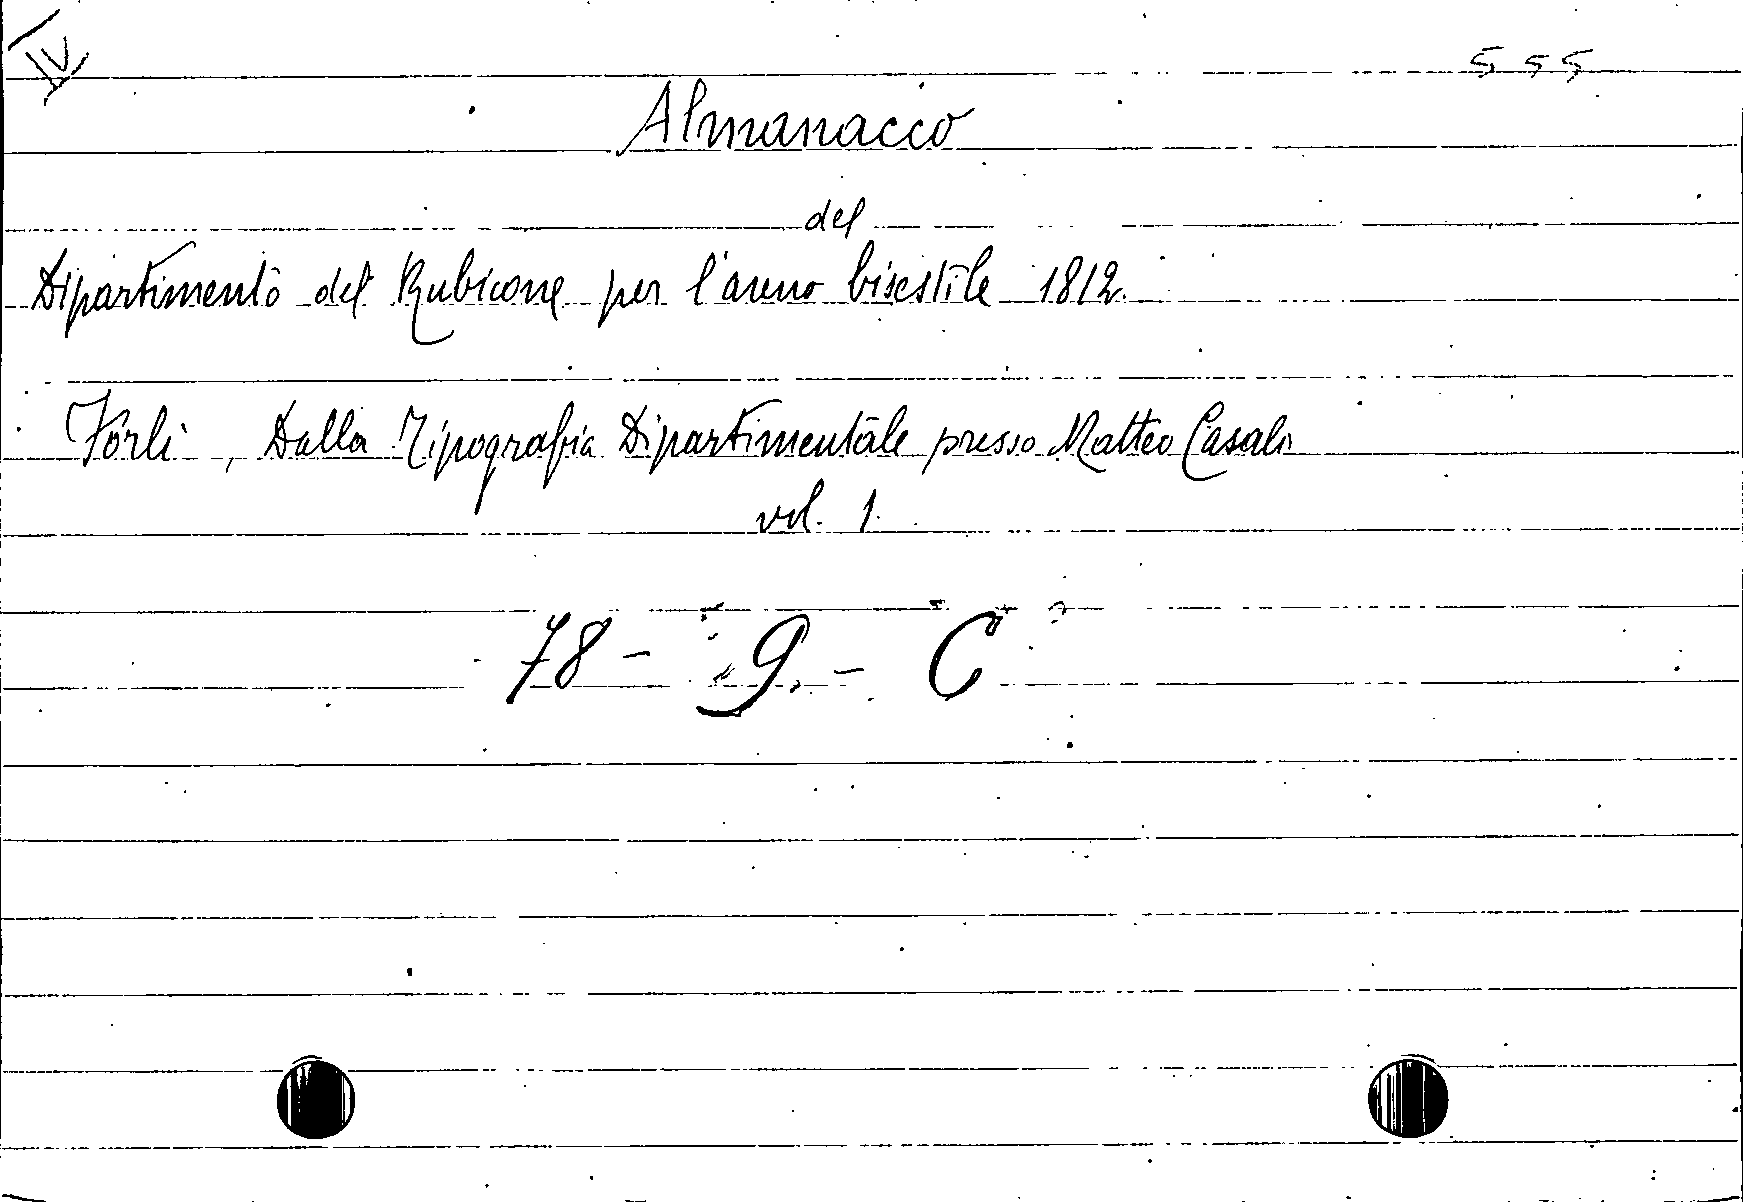 IV
555
Almanacco
del
Dipartimento del Rubicone per l'anno bisestile 1812.
Forlì, Dalla Tipografia Dipartimentale presso Matteo Casali
vol. 1.
78 - 9. - C